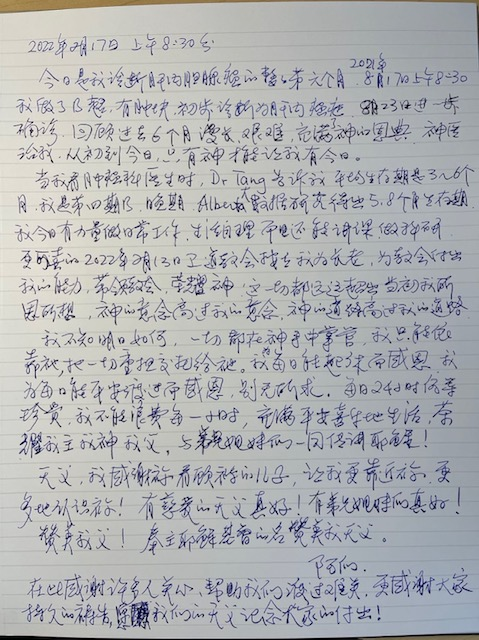 2022年2月17日 上午8:30分
今日是我诊断肝内胆脉癌的整整第六个月. 2021年8月17日上午8:30
我做了B超, 有肿块, 初步诊断为肝内癌症 8月23日进一步
确诊. 回顾过去6个月漫长艰难, 充满神的恩典. 神医
治我, 从初到今日, 只有神才能让我有今日。
当我看肿瘤科医生时, Dr Tang告诉我平均生存期是3~6个
月, 我是第四期B 晚期 Alberta 最指标研究得出5.8个月生存期
我今日有力量做日常工作, 生活自理 而且还能讲课做科研.
更可喜的2022年2月13日了道教会按立我为长老, 为教会付出
我的能力, 带领教会, 荣耀神. 这一切都远远超出当初我所
思所想, 神的意念高过我的意念, 神的道路高过我的道路
我不知明日如何, 一切都在神手中掌管, 我只能依
靠祂, 把一切重担交托给祂。我每日能起床而感恩, 我
为每日能平安渡过而感恩, 别无所求. 每日24小时倍等
珍贵, 我不能浪费每一小时, 充满平安喜乐地生活, 荣
耀我主我神我父, 与弟兄姐妹们一同传讲耶稣!
天父, 我感谢祢看顾祢的儿子, 让我更靠近祢, 更
多地认识祢! 有亲爱的天父真好! 有弟兄姐妹们真好!
赞美我父! 奉主耶稣基督的名赞美我天父.
阿们.
在此感谢许多人关心, 帮助我们渡过难关, 更感谢大家
持久的祷告, 我们的天父记念大家的付出!